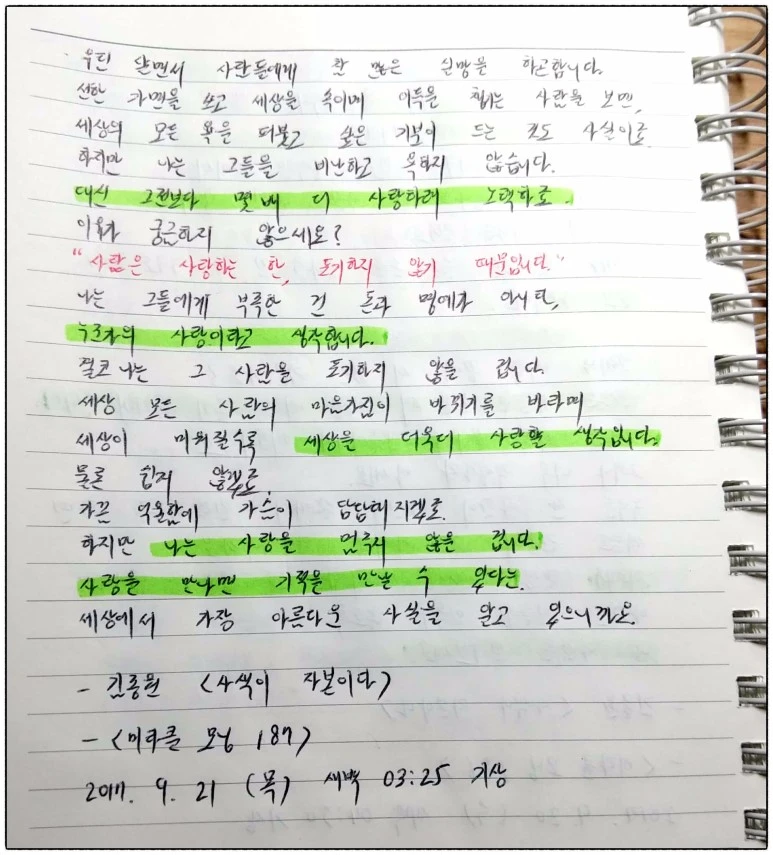 우린 살면서 사람들에게 참 많은 실망을 하곤합니다.
선한 가면을 쓰고 세상을 속이며 이득을 챙기는 사람을 보면,
세상의 모든 욕을 퍼붓고 싶은 기분이 드는 것도 사실이죠.
하지만 나는 그들을 비난하고 욕하지 않습니다.
대신 그전보다 몇 배 더 사랑하려 노력하죠.
이유가 궁금하지 않으세요?
"사람은 사랑하는 한, 포기하지 않기 때문입니다."
나는 그들에게 부족한 건 돈과 명예가 아니라,
누군가의 사랑이라고 생각합니다.
결코 나는 그 사람을 포기하지 않을 겁니다.
세상 모든 사람의 마음가짐이 바뀌기를 바라며
세상이 미워질수록 세상을 더욱더 사랑할 생각입니다.
물론 쉽지 않겠죠.
가끔 억울함에 가슴이 답답해지겠죠.
하지만 나는 사랑을 멈추지 않을 겁니다.
사랑을 만나면 기적을 만날 수 있다는.
세상에서 가장 아름다운 사실을 알고 있으니까요.
- 김종원 <사색이 자본이다>
- <미라클 모닝 187>
2017. 9. 21 (목) 새벽 03:25 기상